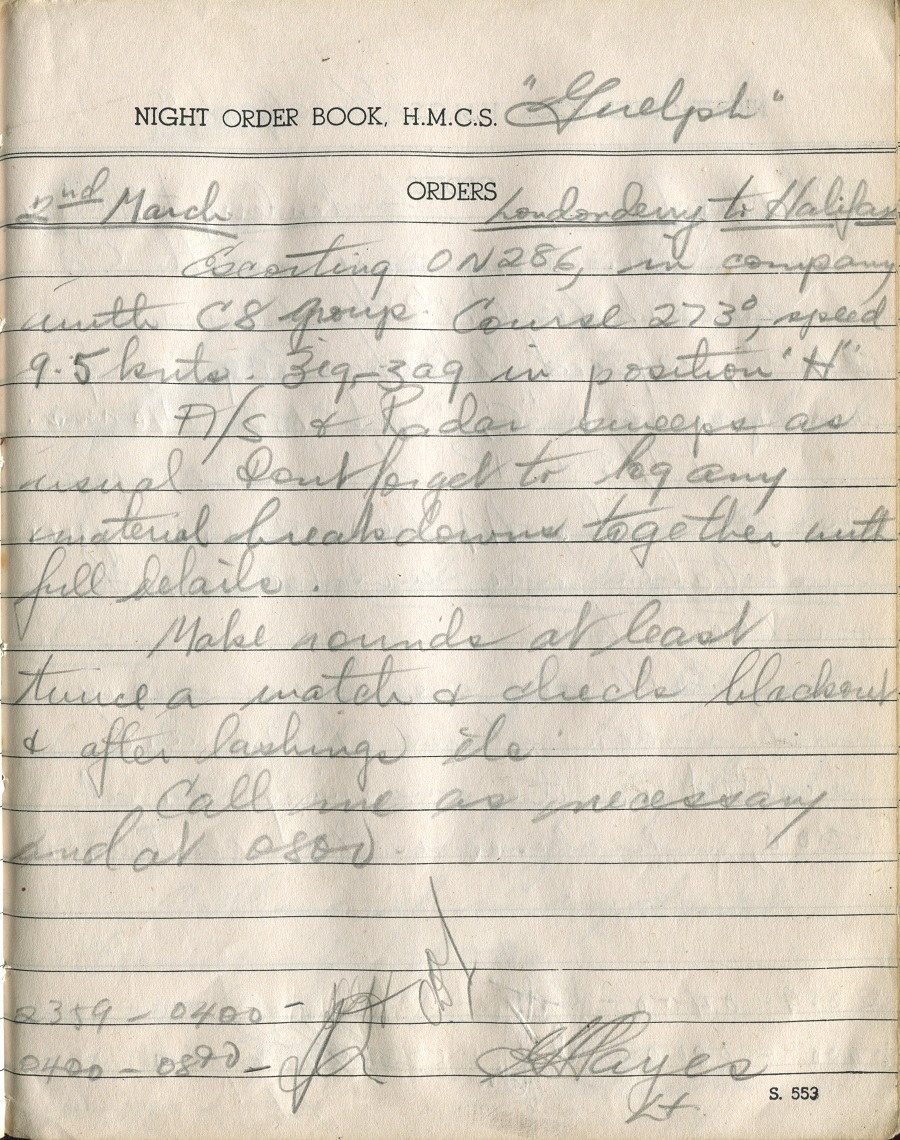 NIGHT ORDER BOOK, H.M.C.S. "Guelph"
ORDERS
2nd March Londonderry to Halifax
Escorting ON286, in company
with C8 group. Course 273°, speed
9.5 knts. Zig-zag in position "H"
A/S & Radar sweeps as
usual Dont forget to log any
material breakdowns together with
full details.
Make rounds at least
twice a watch & check blackout
& after lashings etc
Call me as necessary
and at 0800.
2359 - 0400 -
0400 - 0800 -
Hayes
Lt
S. 553